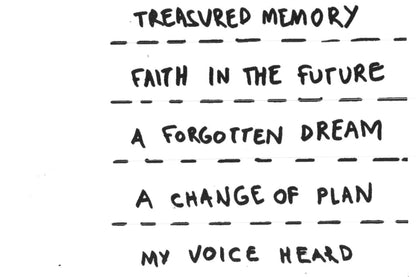 TREASURED MEMORY
FAITH IN THE FUTURE
A FORGOTTEN DREAM
A CHANGE OF PLAN
MY VOICE HEARD